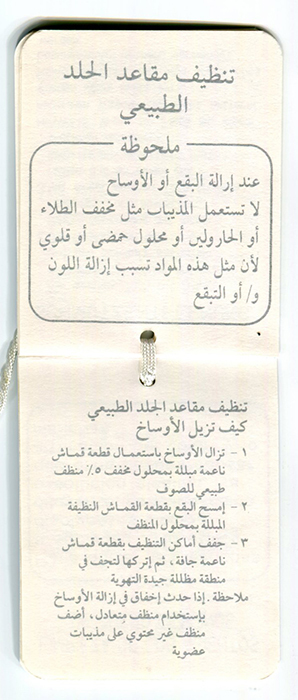 تنظيف مقاعد الجلد
الطبيعي
ملحوظة
عند إرالة البقع أو الأوساح
لا تستعمل المذيبات مثل مخفف الطلاء
أو الجارولين أو محلول حمضى أو قلوي
لأن مثل هذه المواد تسبب إزالة اللون
و/ أو التبقع
تنظيف مقاعد الجلد الطبيعي
كيف تزيل الأوساخ
١ - تزال الأوساخ باستعمال قطعة قماش
ناعمة مبللة بمحلول مخفف ٥٪ منظف
طبيعي للصوف
٢ - إمسح البقع بقطعة القماش النظيفة
المبللة بمحلول المنظف
٣ - جفف أماكن التنظيف بقطعة قماش
ناعمة جافة ، ثم إتركها لتجف في
منطقة مظللة جيدة التهوية
ملاحظة .إذا حدث إخفاق في إزالة الأوساخ
بإستخدام منظف متعادل، أضف
منظف غير محتوي على مذيبات
عضوية